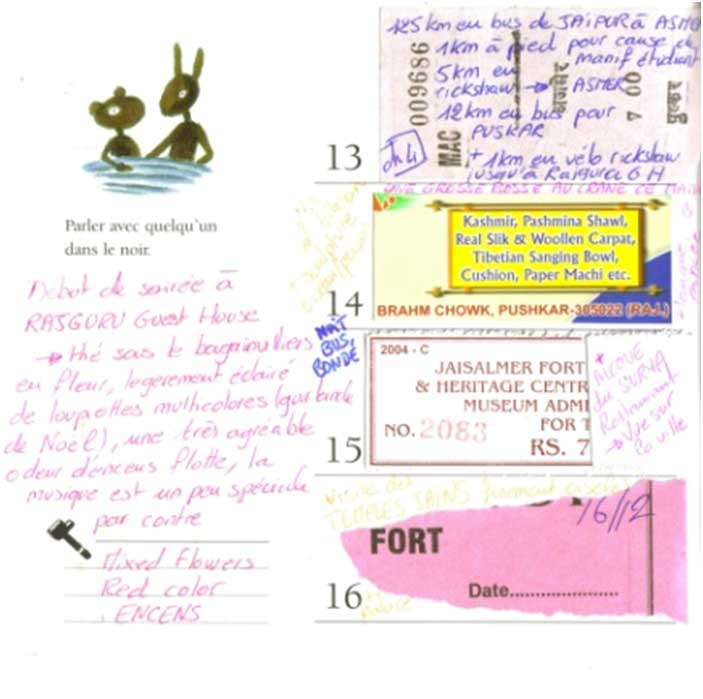 125 km en bus de JAIPUR à ASMER
1km à pied pour cause de
manif étudiant
5km en
rickshaw → ASMER
12km en bus pour
PUSKAR
+ 1km en vélo rickshaw
jusqu'à Rajguru G H
009686
MAC
अजमेर
7 00
पुष्कर
13
UNE GROSSE BOSSE AU CRANE CE
Parler avec quelqu'un
dans le noir.
Kashmir, Pashmina Shawl,
Real Slik & Woollen Carpat,
Tibetian Sanging Bowl,
Cushion, Paper Machi etc.
BRAHM CHOWK, PUSHKAR-305022 (RAJ.)
14
Debut de soirée à
RAJGURU Guest House
→ thé sous le bougainvilliers
en fleur, legerement éclairé
de loupiottes multicolores (guirlande
de Noël), une très agréable
odeur d'encens flotte, la
musique est un peu spéciale
par contre
Mixed Flowers
Red color
ENCENS
BUS
BONDÉ
2004 - C
JAISALMER FORT
& HERITAGE CENTR
MUSEUM ADMI
FOR T
NO. 2083
RS. 7
15
du SURYA
Restaurant
→ Vue sur
la ville
TEMPLES JAINS
16/12
FORT
Date.....................
16